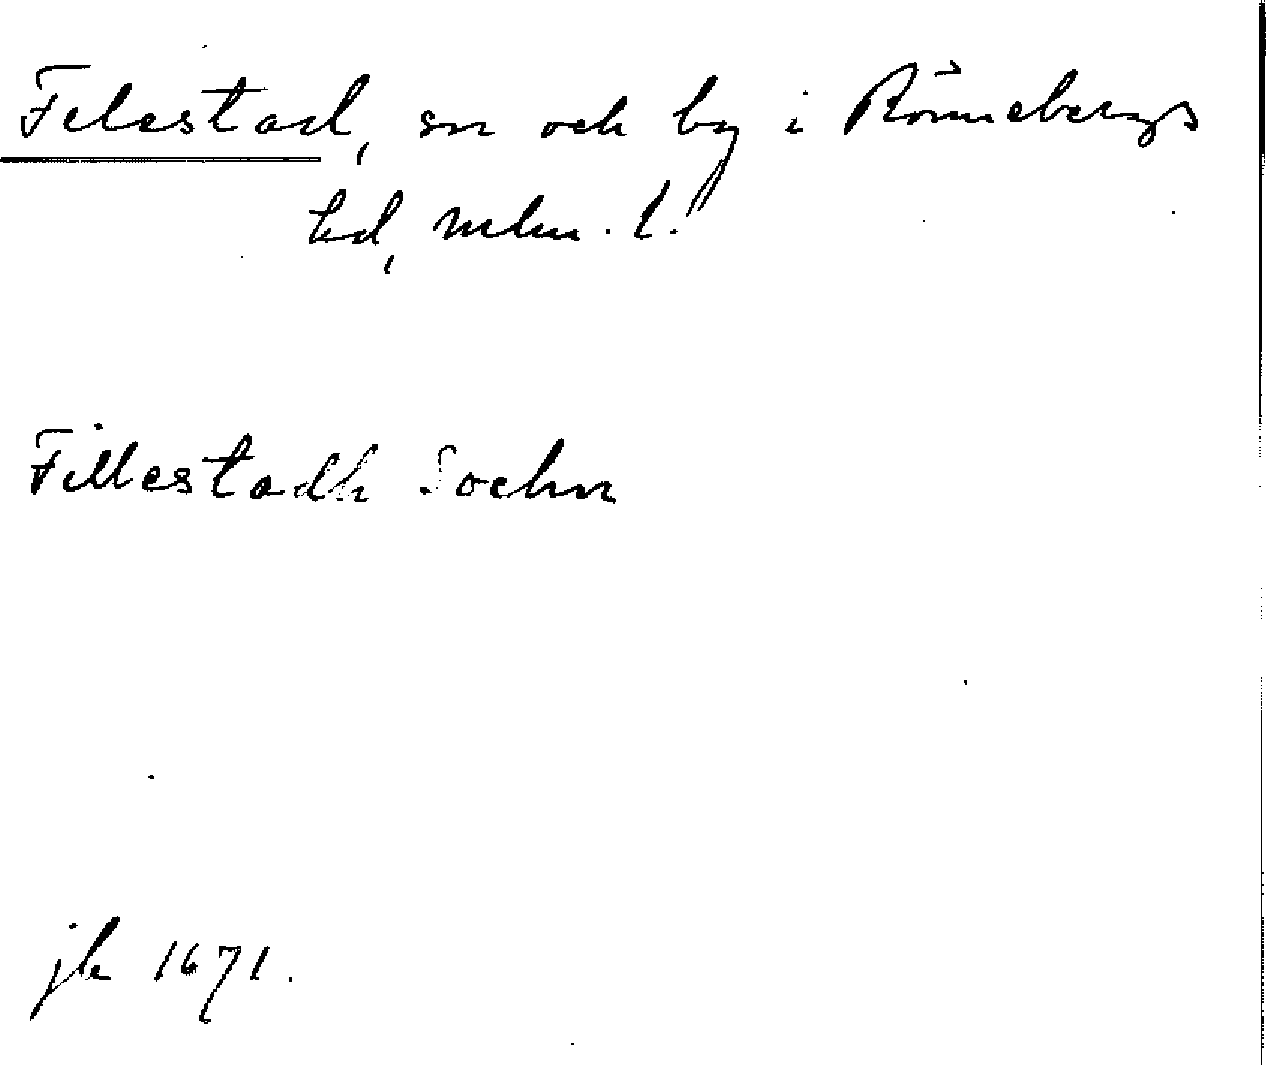 Felestad, sn och by i Rönnebergs
hd, mlm. l.
Fillestadh Sochn
jb 1671.